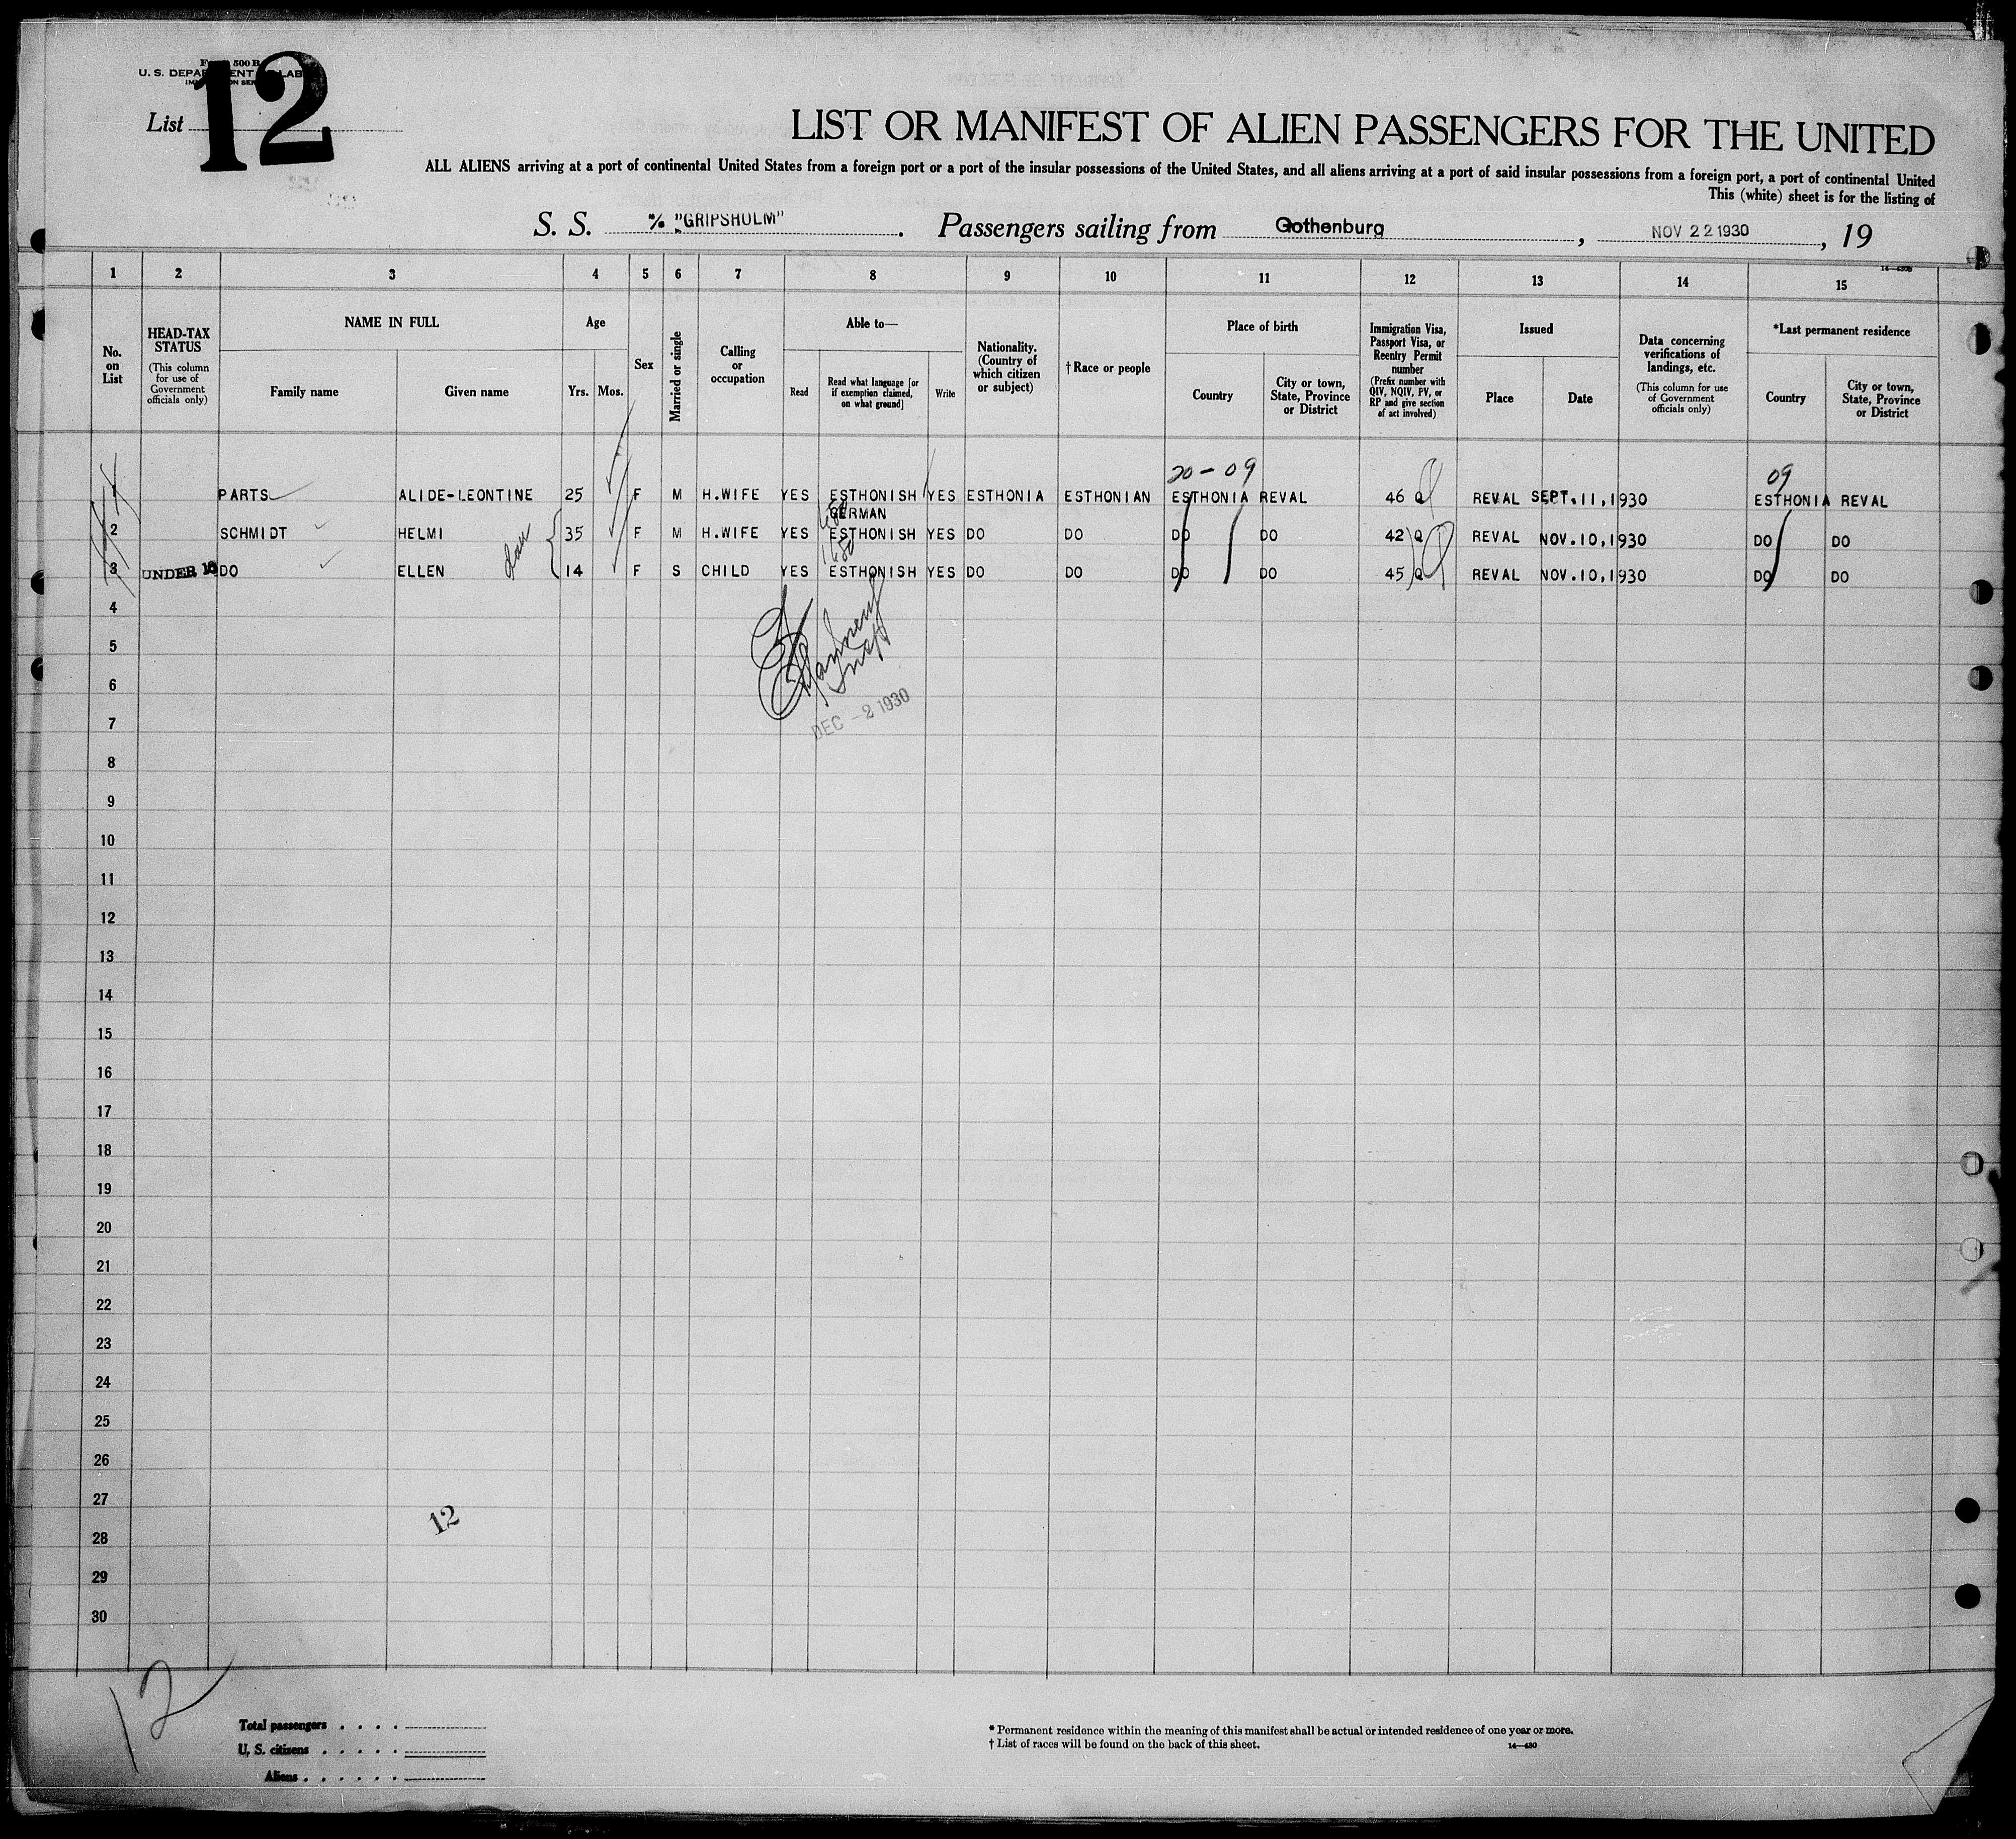 500 B
U. S. DEPA
List
12
LIST OR MANIFEST OF ALIEN PASSENGERS FOR THE UNITED
ALL ALIENS arriving at a port of continental United States from a foreign port or a port of the insular possessions of the United States, and all aliens arriving at a port of said insular possessions from a foreign port, a port of continental United
This (white) sheet is for the listing of
S. S. "GRIPSHOLM". Passengers sailing from Gothenburg, NOV 22 1930, 19
1 2 3 4 5 6 7 8 9 10 11 12 13 14 15
No. on List
HEAD-TAX STATUS
(This column for use of Government officials only)
NAME IN FULL
Family name
Given name
Age
Yrs.
Mos.
Sex
Married or single
Calling or occupation
Able to—
Read
Read what language [or if exemption claimed, on what ground]
Write
Nationality. (Country of which citizen or subject)
†Race or people
Place of birth
Country
City or town, State, Province or District
Immigration Visa, Passport Visa, or Reentry Permit number
(Prefix number with QIV, NQIV, PV, or RP and give section of act involved)
Issued
Place
Date
Data concerning verifications of landings, etc.
(This column for use of Government officials only)
*Last permanent residence
Country
City or town, State, Province or District
20-09 09
PARTS ALIDE-LEONTINE 25 F M H.WIFE YES ESTHONISH YES ESTHONIA ESTHONIAN ESTHONIA REVAL 46 Q REVAL SEPT.11,1930 ESTHONIA REVAL
GERMAN
2 SCHMIDT HELMI 35 F M H.WIFE YES ESTHONISH YES DO DO DO DO 42 Q REVAL NOV.10,1930 DO DO
3 UNDER 16 DO ELLEN 14 F S CHILD YES ESTHONISH YES DO DO DO DO 45 Q REVAL NOV.10,1930 DO DO
4
5
6
7
DEC -2 1930
8
9
10
11
12
13
14
15
16
17
18
19
20
21
22
23
24
25
26
27
12
28
29
30
12
Total passengers . . . .
U. S. citizens . . . . .
Aliens . . . . . .
* Permanent residence within the meaning of this manifest shall be actual or intended residence of one year or more.
† List of races will be found on the back of this sheet.
14—430